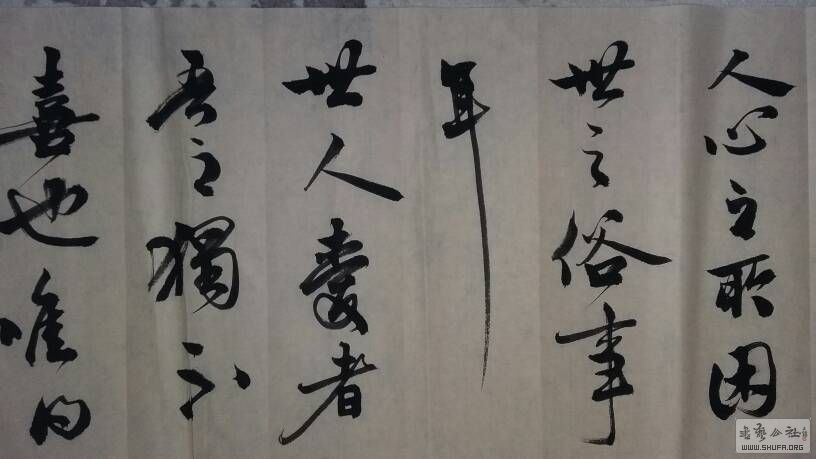 人心之所困
世之俗事
耳
世人愛者
吾之獨不
喜也唯
書藝公社
WWW.SHUFA.ORG